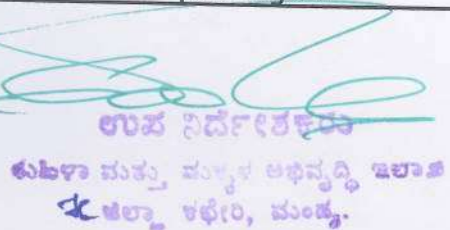 ಉಪ ನಿರ್ದೇಶಕರು
ಮಹಿಳಾ ಮತ್ತು ಮಕ್ಕಳ ಅಭಿವೃದ್ಧಿ ಇಲಾಖೆ
ಜಿಲ್ಲಾ ಕಛೇರಿ, ಮಂಡ್ಯ.